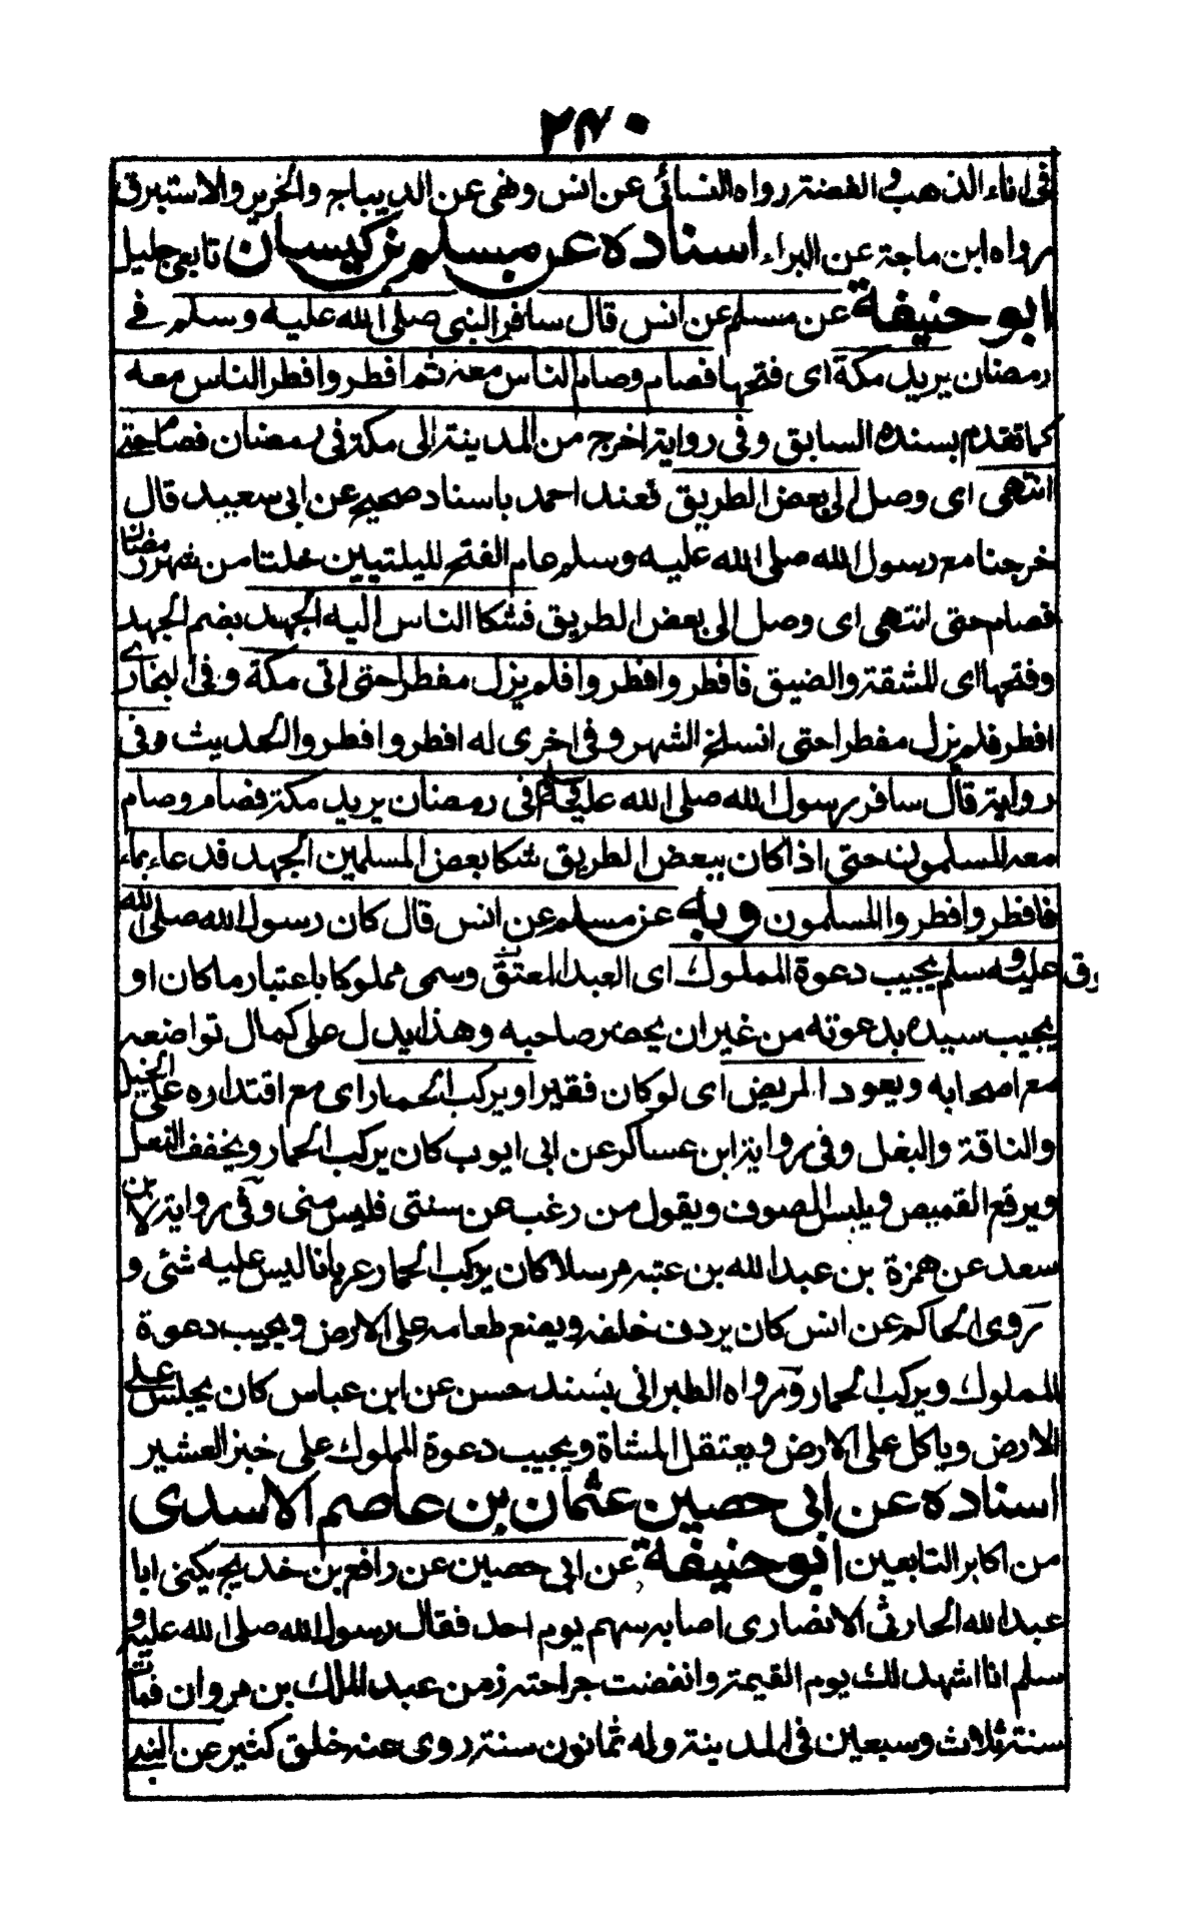 ٢٤٠
فى اناء الذهب و الفضة رواه النسائى عن انس ونهى عن الديباج والحرير والاستبرق
رواه ابن ماجة عن البراء اسناده عن مسلم بن كيسان تابعى جليل
ابو حنيفة عن مسلم عن انس قال سافر النبى صلى الله عليه وسلم فى
رمضان يريد مكة اى فتحها فصام وصام الناس معه ثم افطر وافطر الناس معه
كما تقدم بسنده السابق وفى رواية اخرج من المدينة الى مكة فى رمضان فصام حتى
انتهى اى وصل الى بعض الطريق فعند احمد باسناد صحيح عن ابى سعيد قال
خرجنا مع رسول الله صلى الله عليه وسلم عام الفتح لليلتين خلتا من شهر رمضان
فصام حتى انتهى اى وصل الى بعض الطريق فشكا الناس اليه الجهد بضم الجهد
وفتحها اى المشقة والضيق فافطر وافطروا فلم يزل مفطرا حتى اتى مكة وفى البخارى
افطر فلم يزل مفطرا حتى انسلخ الشهر وفى اخرى له افطر وافطروا الحديث وفى
رواية قال سافر رسول الله صلى الله عليه وسلم فى رمضان يريد مكة فصام وصام
معه المسلمون حتى اذا كان ببعض الطريق شكا بعض المسلمين الجهد فدعا بماء
فافطر وافطر والمسلمون وبه عن مسلم عن انس قال كان رسول الله صلى الله
عليه و سلم يجيب دعوة المملوك اى العبد المعتق وسمى مملوكا باعتبار ما كان او
يجيب سيده بدعوته من غير ان يحضر صاحبه وهذا يدل على كمال تواضعه
مع اصحابه ويعود المريض اى لو كان فقيرا ويركب الحمار اى مع اقتداره على الخيل
والناقة والبغل وفى رواية ابن عساكر عن ابى ايوب كان يركب الحمار ويخفف النعل
ويرقع القميص ويلبس الصوف ويقول من رغب عن سنتى فليس منى وفى رواية لابن
سعد عن همزة بن عبد الله بن عتبه مرسلا كان يركب الحمار عريانا ليس عليه شئى و
روى الحاكم عن انس كان يردف خلفه ويضع طعامه على الارض ويجيب دعوة
المملوك ويركب الحمار ورواه الطبرانى بسند حسن عن ابن عباس كان يجلس على
الارض وياكل على الارض ويعتقل المشاة ويجيب دعوة المملوك على خبز الشعير
اسناده عن ابى حصين عثمان بن عاصم الاسدى
من اكابر التابعين ابو حنيفة عن ابى حصين عن رافع بن خديج يكنى ابا
عبد الله الحارثى الانصارى اصابه سهم يوم احد فقال رسول الله صلى الله عليه و
سلم انا اشهد لك يوم القيمة وانفضت جراحته زمن عبد الملك بن مروان فمات
سنة ثلاث وسبعين فى المدينة وله ثمانون سنة روى عنه خلق كثير عن النبى